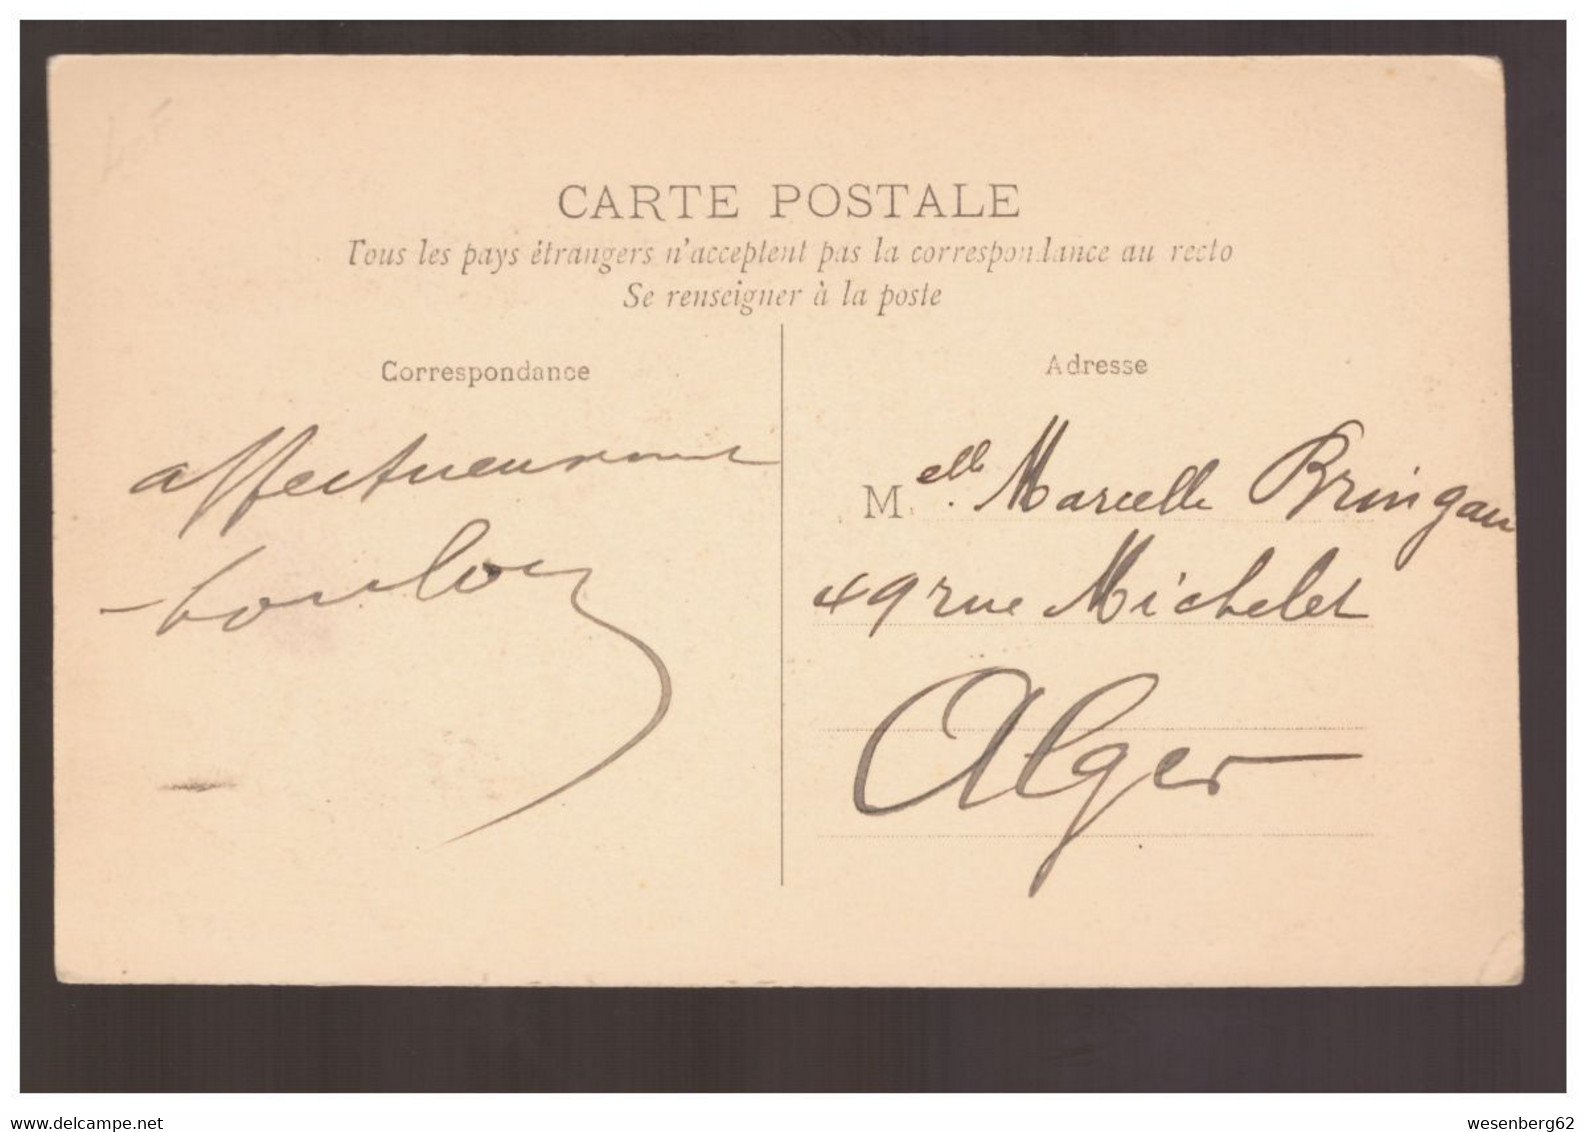 CARTE POSTALE
Tous les pays étrangers n'acceptent pas la correspondance au recto
Se renseigner à la poste
Correspondance
affectueusement
Adresse
Melle Marcelle Bringau
49 rue Michelet
Alger
www.delcampe.net
wesenberg62